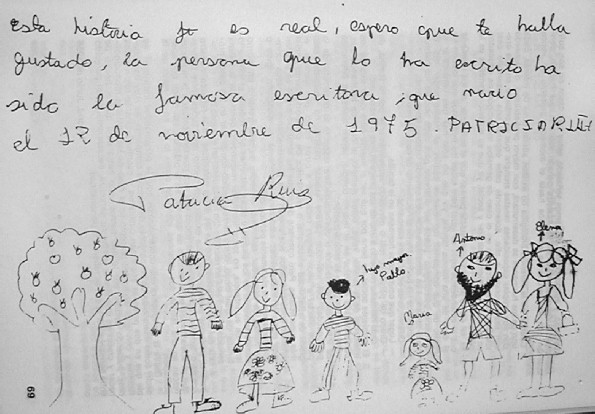 Esta historia es real, espero que te halla
gustado, la persona que lo ha escrito ha
sido la famosa escritora, que nacio
el 12 de noviembre de 1975. PATRICIA RUIZ
Patricia Ruiz
Elena
Antonio
hijo mayor
Pablo
Maria
69